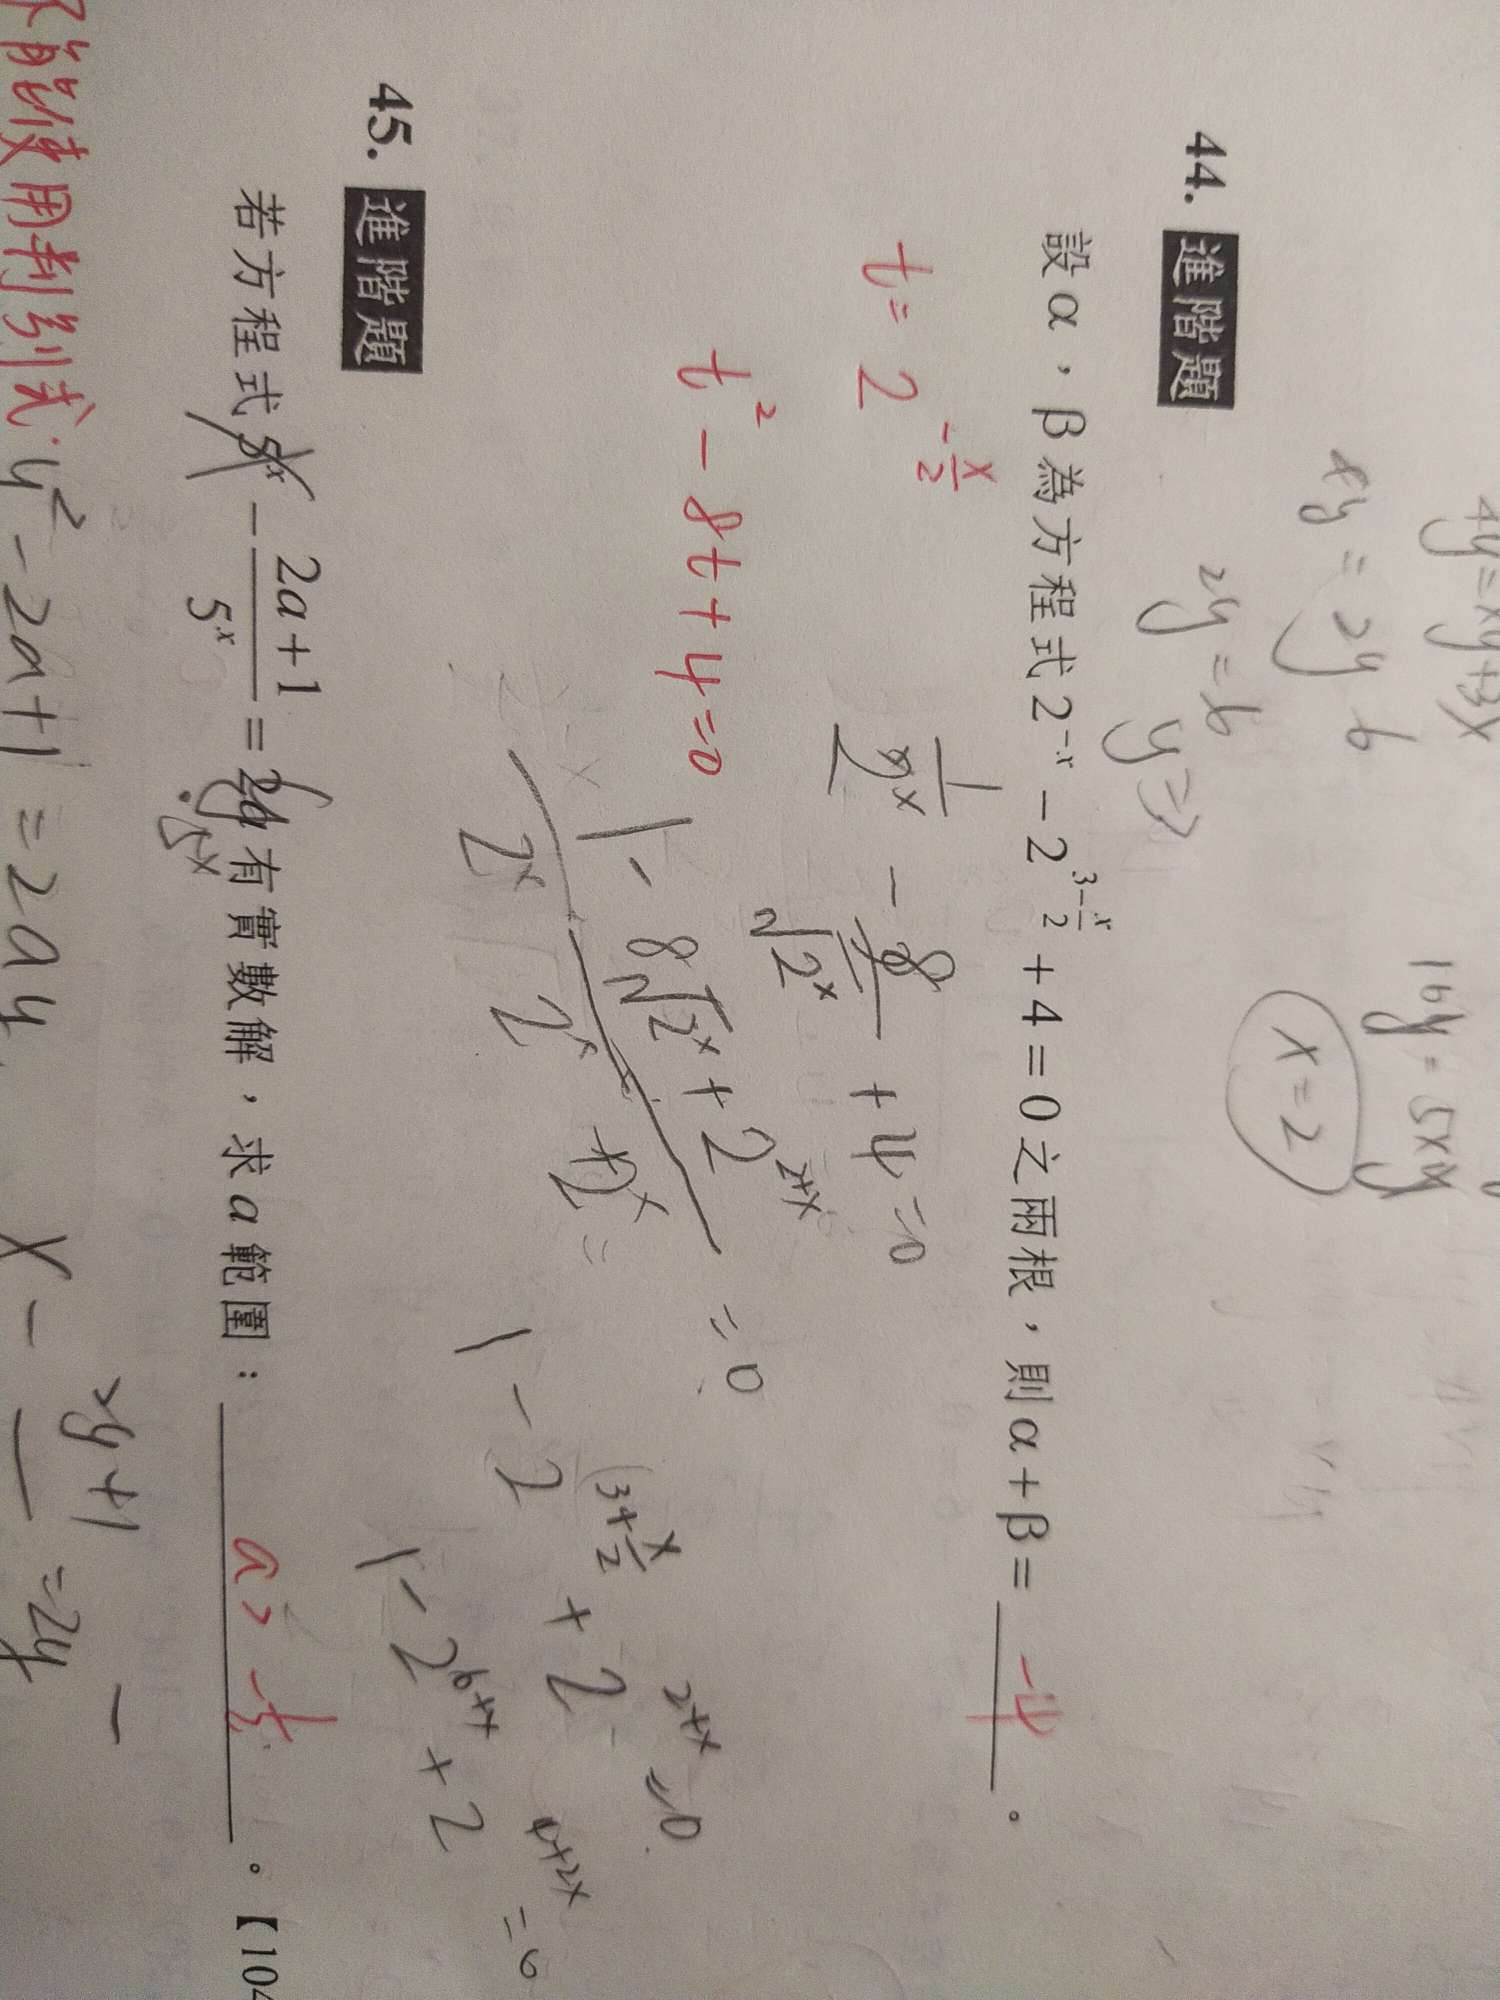 4y=xy+3x
16y=5xy
xy=2y
6
x=2
2y=6
y=3
44. 進階題
設α，β為方程式2^{-x}-2^{3-\frac{x}{2}}+4=0之兩根，則α+β= -4 。
t=2^{-\frac{x}{2}}
\frac{1}{2^x}-\frac{8}{\sqrt{2^x}}+4=0
t^2-8t+4=0
1-8\sqrt{2^x}+2^{2+x}=0
2^x
1-2^{3+\frac{x}{2}}+2^{2+x}=0
1-2^{6+x}+2^{4+2x}=0
45. 進階題
若方程式5^x-\frac{2a+1}{5^x}=2a有實數解，求a範圍： a>-\frac{1}{2} 。【104
·5^x
能使用判別式.y^2-2a+1=2ay
x-\frac{2y+1}{}=2y